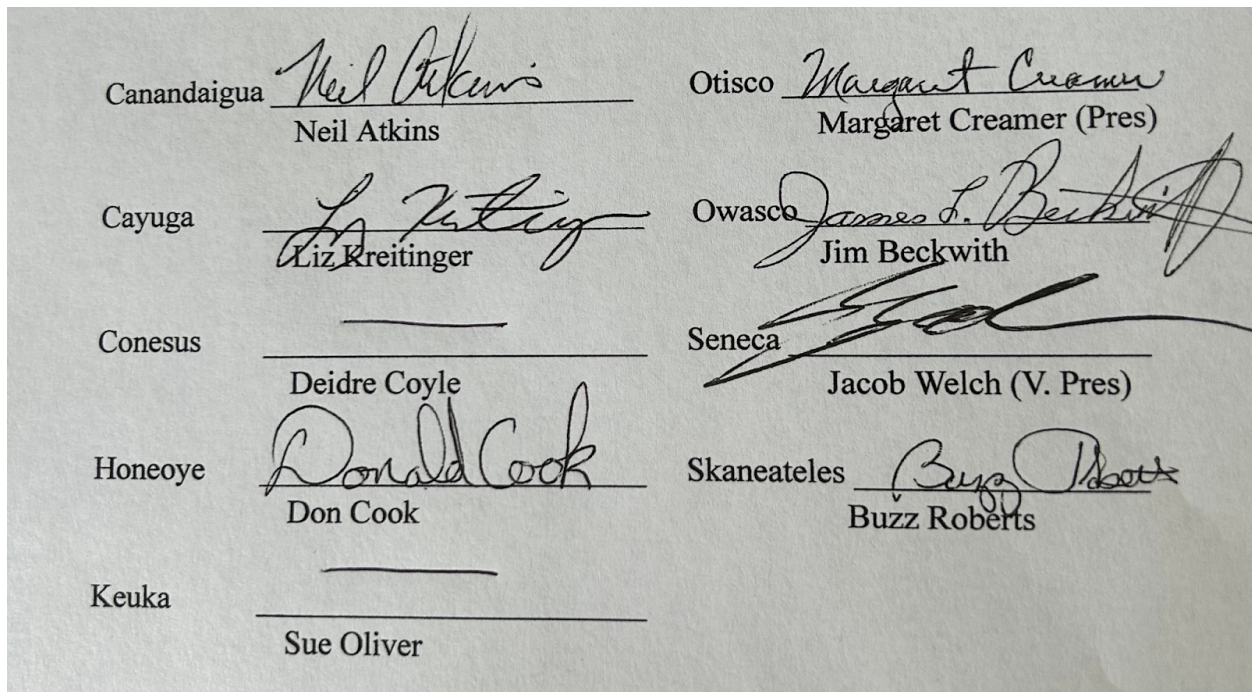 Canandaigua Neil Atkins
Neil Atkins
Cayuga Liz Kreitinger
Liz Kreitinger
Conesus
Deidre Coyle
Honeoye Donald Cook
Don Cook
Keuka
Sue Oliver
Otisco Margaret Creamer
Margaret Creamer (Pres)
Owasco James L. Beckwith
Jim Beckwith
Seneca
Jacob Welch (V. Pres)
Skaneateles Buzz Roberts
Buzz Roberts